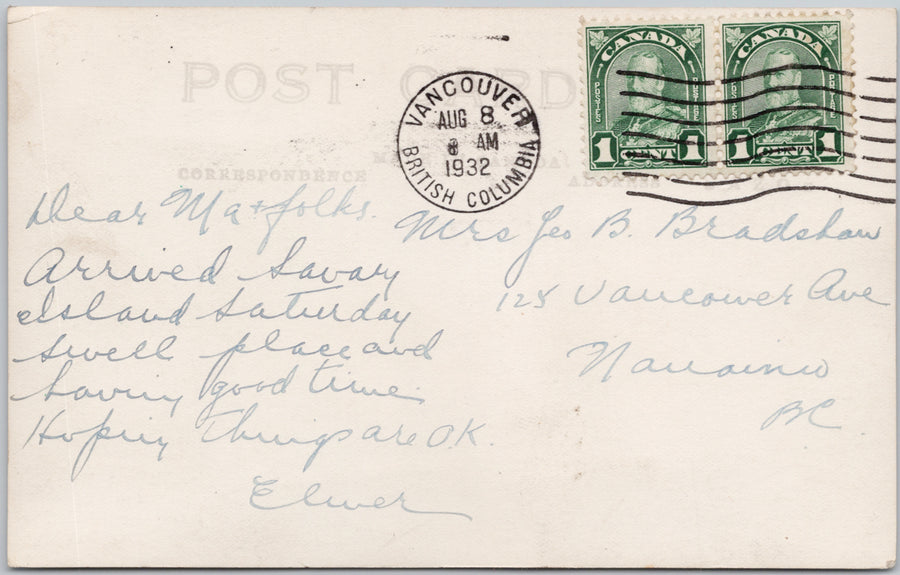 POST CARD
CANADA CANADA
POSTES POSTES
1 CENT 1 1 CENT 1
VANCOUVER
AUG 8
8 AM
1932
BRITISH COLUMBIA
CORRESPONDENCE
ADDRESS
Dear Ma + folks.
Arrived Savary
Island Saturday
swell place and
having good time.
Hoping things are O.K.
Elmer
Mrs Geo B. Bradshaw
125 Vancouver Ave
Nanaimo
BC